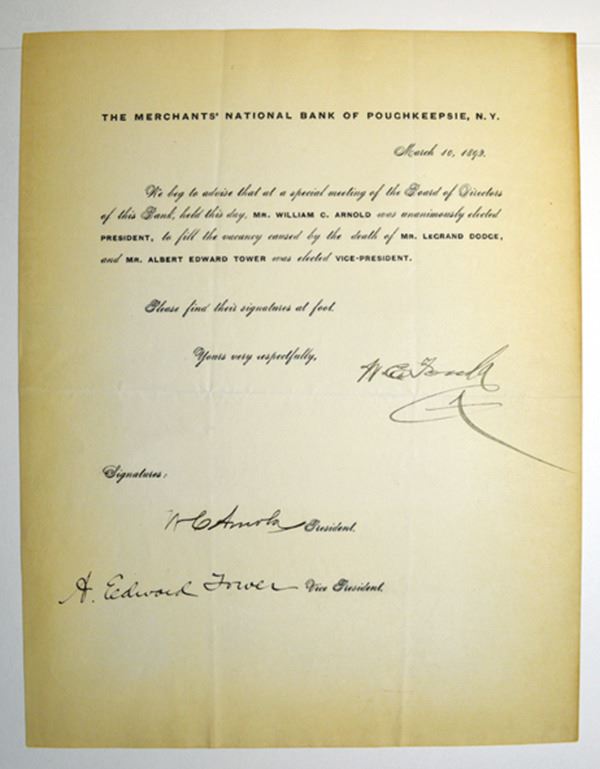 THE MERCHANTS' NATIONAL BANK OF POUGHKEEPSIE, N.Y.
March 10, 1893.
We beg to advise that at a special meeting of the Board of Directors
of this Bank, held this day, MR. WILLIAM C. ARNOLD was unanimously elected
PRESIDENT, to fill the vacancy caused by the death of MR. LEGRAND DODGE,
and MR. ALBERT EDWARD TOWER was elected VICE-PRESIDENT.
Please find their signatures at foot.
Yours very respectfully,
W. C.
Signatures:
W C Arnold President.
A. Edward Tower Vice President.